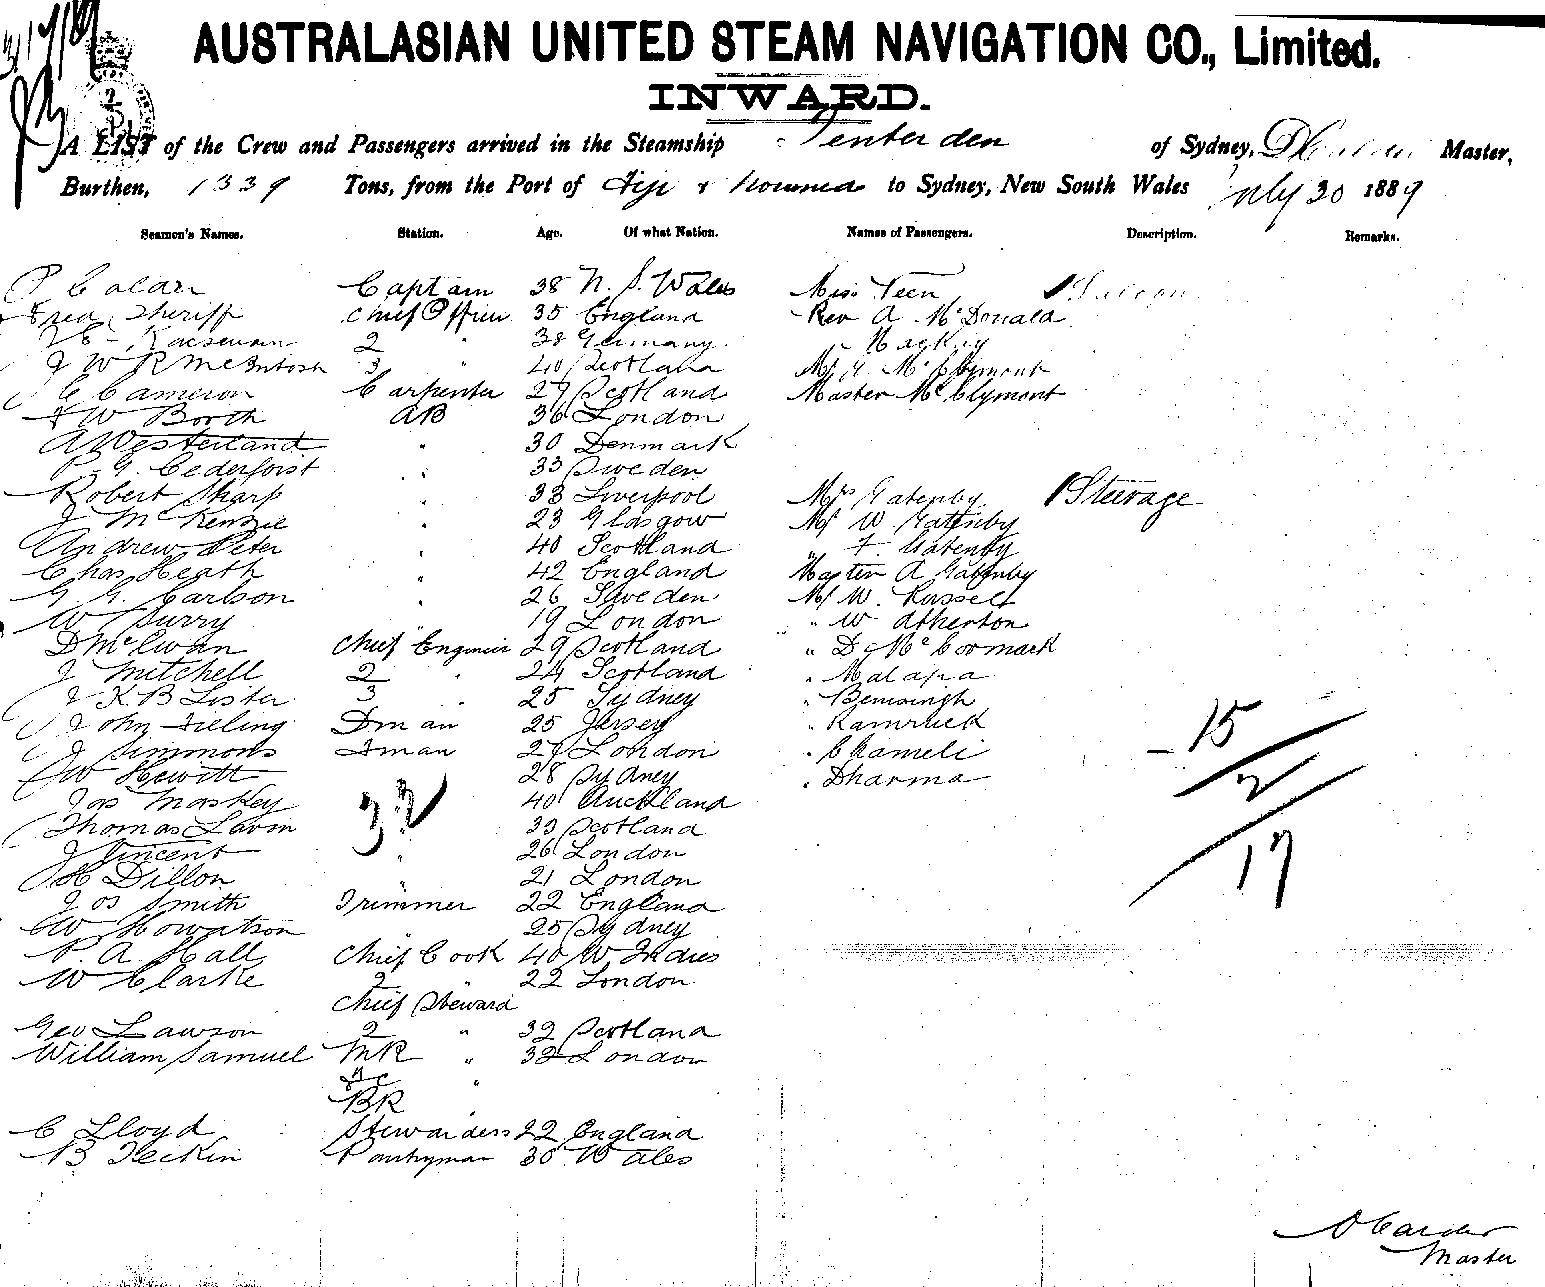 31/7/89
AUSTRALASIAN UNITED STEAM NAVIGATION CO., Limited.
INWARD.
A LIST of the Crew and Passengers arrived in the Steamship Tenterden of Sydney, D Calder Master,
Burthen, 1339 Tons, from the Port of Fiji & Noumea to Sydney, New South Wales July 30 1889
Seamen's Names. Station. Age. Of what Nation. Names of Passengers. Description. Remarks.
Calder Captain 38 N. S. Wales Miss Teen Saloon
Fred Sheriff Chief Officer 35 England Rev A McDonald
2 " 38 Germany " Mackay
J W R McIntosh 3 " 40 Scotland Mr McClymont
C Cameron Carpenter 27 Scotland Master McClymont
W Booth AB 36 London
A Westerland " 30 Denmark
P. G. Cederforst " 33 Sweden
Robert Sharp " 33 Liverpool Mrs Gatenby Steerage
J McKenzie " 23 Glasgow Mr W. Gatenby
Andrew Peter " 40 Scotland " F. Gatenby
Chas Heath " 42 England Master A Gatenby
G. G. Carlson " 26 Sweden Mr W. Russell
W Surry " 19 London " W Atherton
D McEwan Chief Engineer 29 Scotland " D McCormack
J Mitchell 2 " 24 Scotland " Malapa
J K B Lister 3 " 25 Sydney " Benisingh
John Filling Dman 25 Jersey " Ramruck
J Simmons Fman 27 London " Chameli
W Hewitt 28 Sydney " Dharma
Jas Maskey " 40 Auckland
Thomas Lavin " 33 Scotland
J Vincent " 26 London
H Dillon " 21 London
Jos Smith Trimmer 22 England
W Howatson " 25 Sydney
P. A. Hall Chief Cook 40 W. Indies
W Clarke 2 " 22 London
Chief Steward
Geo Lawson 2 " 32 Scotland
William Samuel MR " 32 London
BR "
C Lloyd Stewardess 22 England
B Teckin Pantryman 30 Wales
32
15
2
17
D Calder
Master